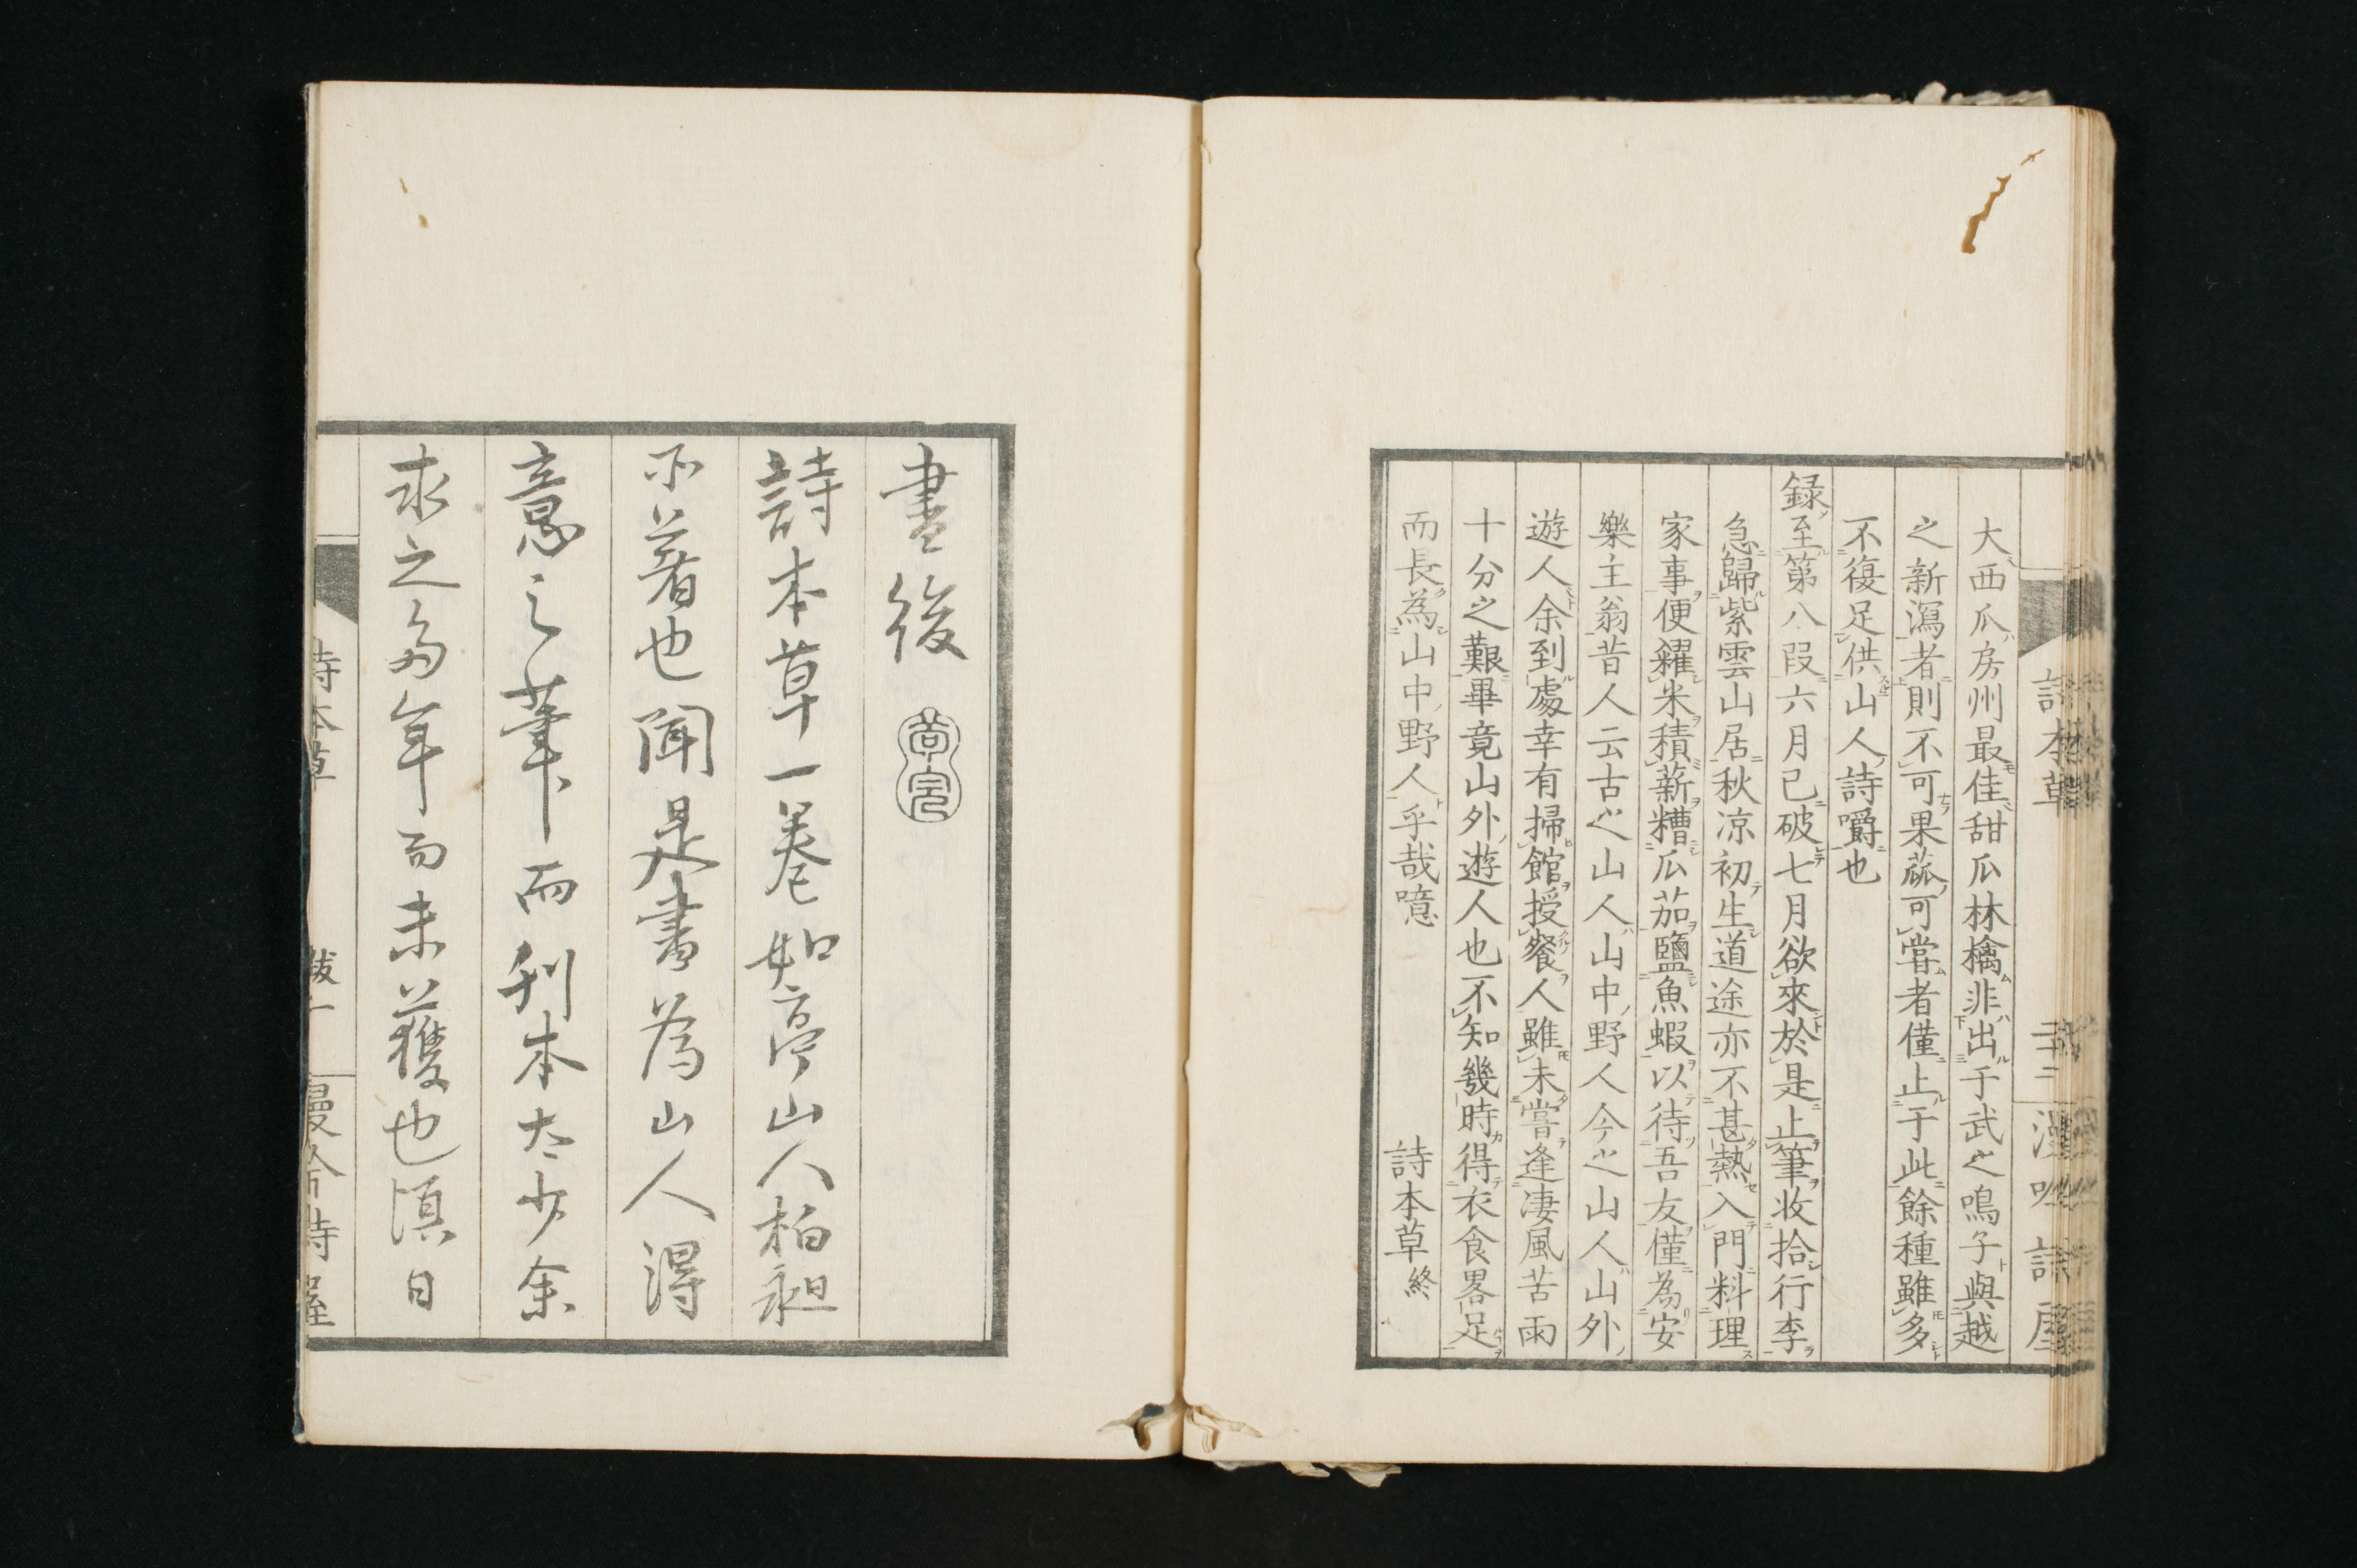 大西瓜房州最佳甜瓜林檎非出于武之鳴子與越
之新瀉者則不可果蓏可嘗者僅止于此餘種雖多
不復足供山人詩嚼也
録至第八段六月已破七月欲來於是止筆收拾行李
急歸紫雲山居秋凉初生道途亦不甚熱入門料理
家事便糴米積薪糟瓜茄鹽魚蝦以待吾友僅為安
樂主翁昔人云古之山人山中野人今之山人山外
遊人余到處幸有掃館授餐人雖未嘗逢凄風苦雨
十分之艱畢竟山外遊人也不知幾時得衣食畧足
而長為山中野人乎哉噫
詩本草終
書後
詩本草一卷如亭山人柏昶
所著也聞是書為山人得
意之筆而刊本太少余
求之多年而未獲也頃日
詩本草
跋一